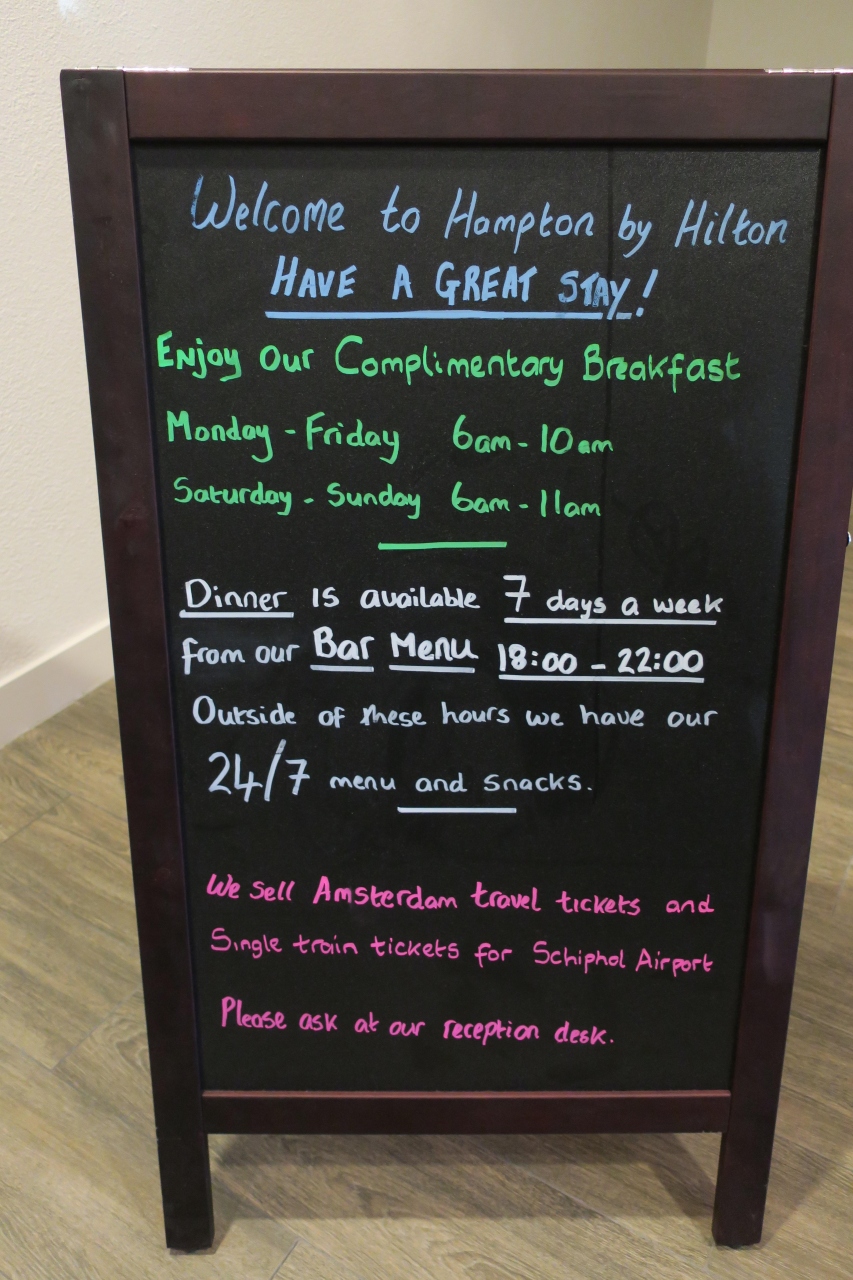 Welcome to Hampton by Hilton
HAVE A GREAT STAY!
Enjoy our Complimentary Breakfast
Monday - Friday 6am - 10am
Saturday - Sunday 6am - 11am
Dinner is available 7 days a week
from our Bar Menu 18:00 - 22:00
Outside of these hours we have our
24/7 menu and snacks.
We sell Amsterdam travel tickets and
Single train tickets for Schiphol Airport
Please ask at our reception desk.